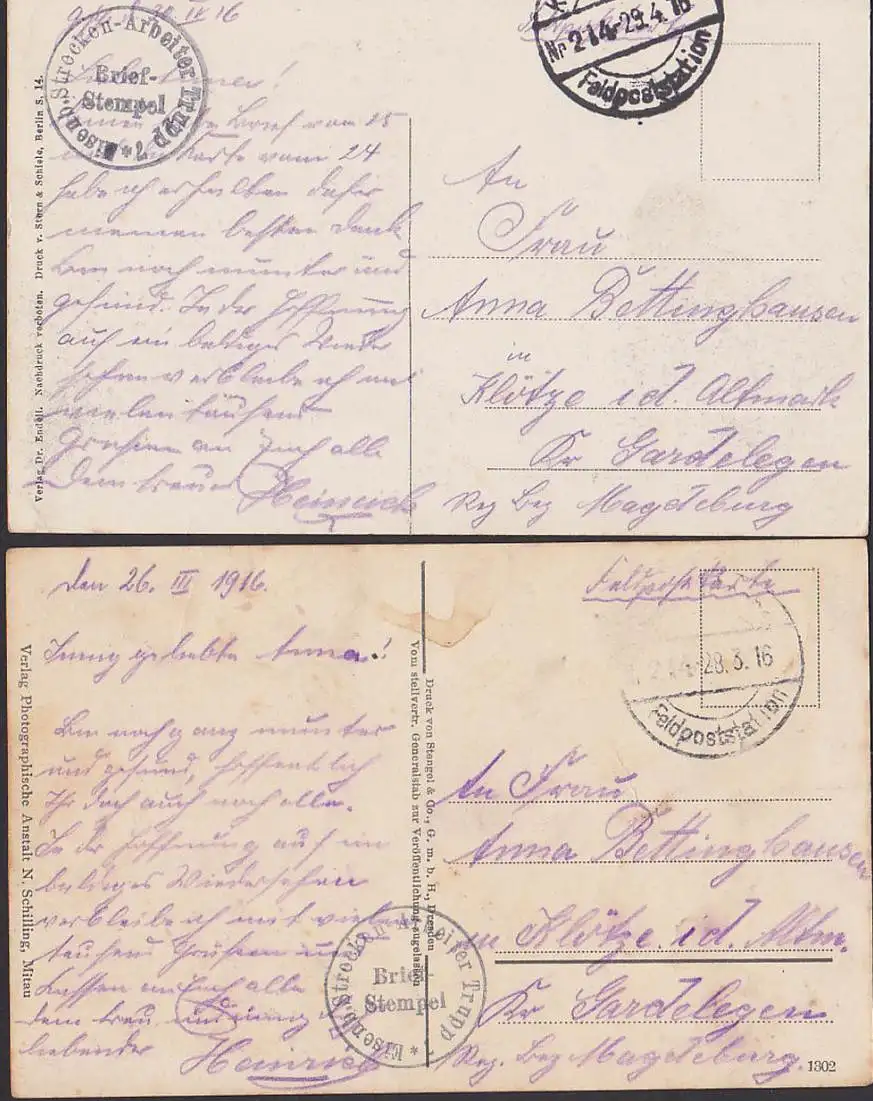 28 IV 16
Eisenb. Strecken-Arbeiter Trupp 7 *
Brief-
Stempel
Nr 214 29.4.16
Feldpoststation
Verlag Dr. Endell. Nachdruck verboten. Druck v. Stern & Schiele, Berlin S. 14.
Brief vom 25
Karte vom 24
habe ich erhalten dafür
meinen besten Dank
Bin noch munter und
gesund. In der Hoffnung
auf ein baldiges Wieder
sehen verbleibe ich mit
vielen tausend
Grüßen an Euch alle
Dein treuer Heinrich
An
Frau
Anna Bettinghausen
in
Klötze i d. Altmark
Kr Gardelegen
Reg Bez Magdeburg
den 26. III 1916.
Innig geliebte Anna!
Bin noch ganz munter
und gesund, hoffentlich
Ihr doch auch noch alle.
In der Hoffnung auf ein
baldiges Wiedersehen
verbleibe ich mit vielen
tausend Grüßen und
Küssen an Euch alle
Dein treu und innig
liebender Heinrich
Verlag Photographische Anstalt N. Schilling, Mitau
Druck von Stengel & Co., G. m. b. H., Dresden
Vom stellvertr. Generalstab zur Veröffentlichung zugelassen
Eisenb. Strecken-Arbeiter Trupp *
Brief-
Stempel
Feldpostkarte
214 28.3.16
Feldpoststation
An Frau
Anna Bettinghausen
in Klötze i.d. Altm.
Kr Gardelegen
Reg. Bez Magdeburg.
1302